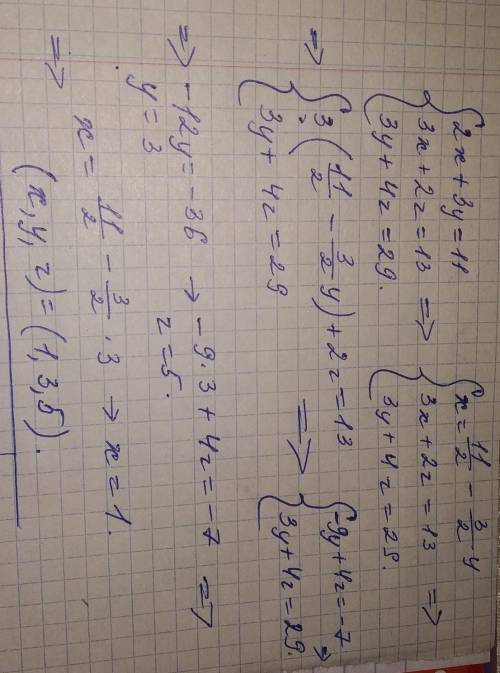 {2x + 3y = 11
{3x + 2z = 13 ⇒ {x = 11/2 - 3/2 y
{3y + 4z = 29. {3x + 2z = 13 ⇒
{3y + 4z = 29.
⇒ {3·(11/2 - 3/2 y) + 2z = 13 ⇒ {-9y + 4z = -7 ⇒
{3y + 4z = 29 {3y + 4z = 29.
⇒ -12y = -36 → -9·3 + 4z = -7 ⇒
y = 3 z = 5.
⇒ x = 11/2 - 3/2 · 3 → x = 1.
(x, y, z) = (1, 3, 5).